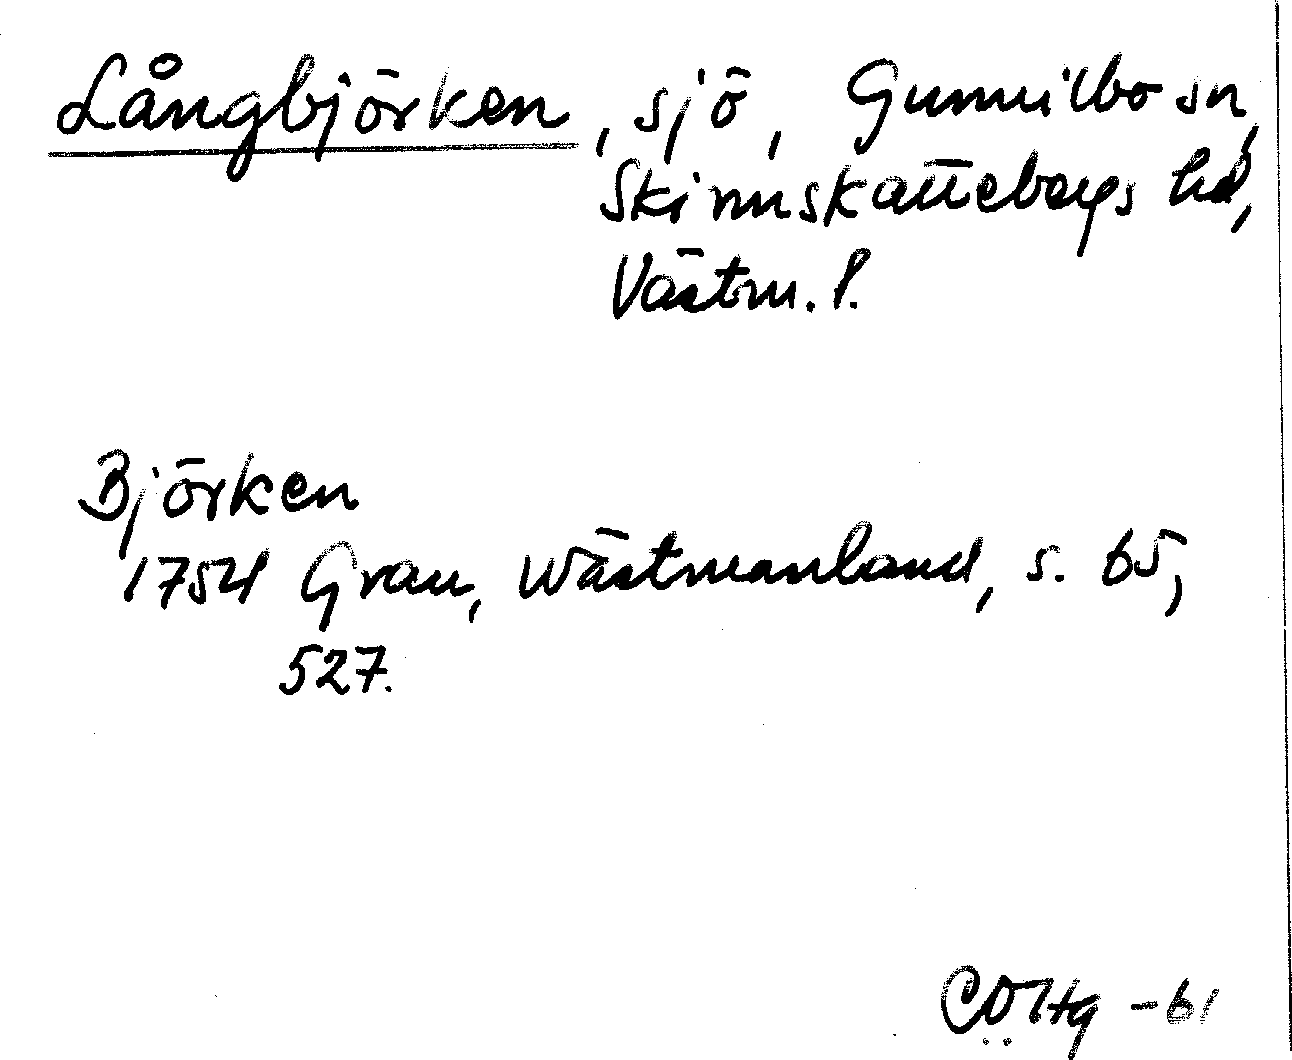 Långbjörken, sjö, Gunnilbo sn,
Skinnskattebergs hd,
Västm. l.
Björken
1754 Grau, Wästmanland, s. 65,
527.
-61